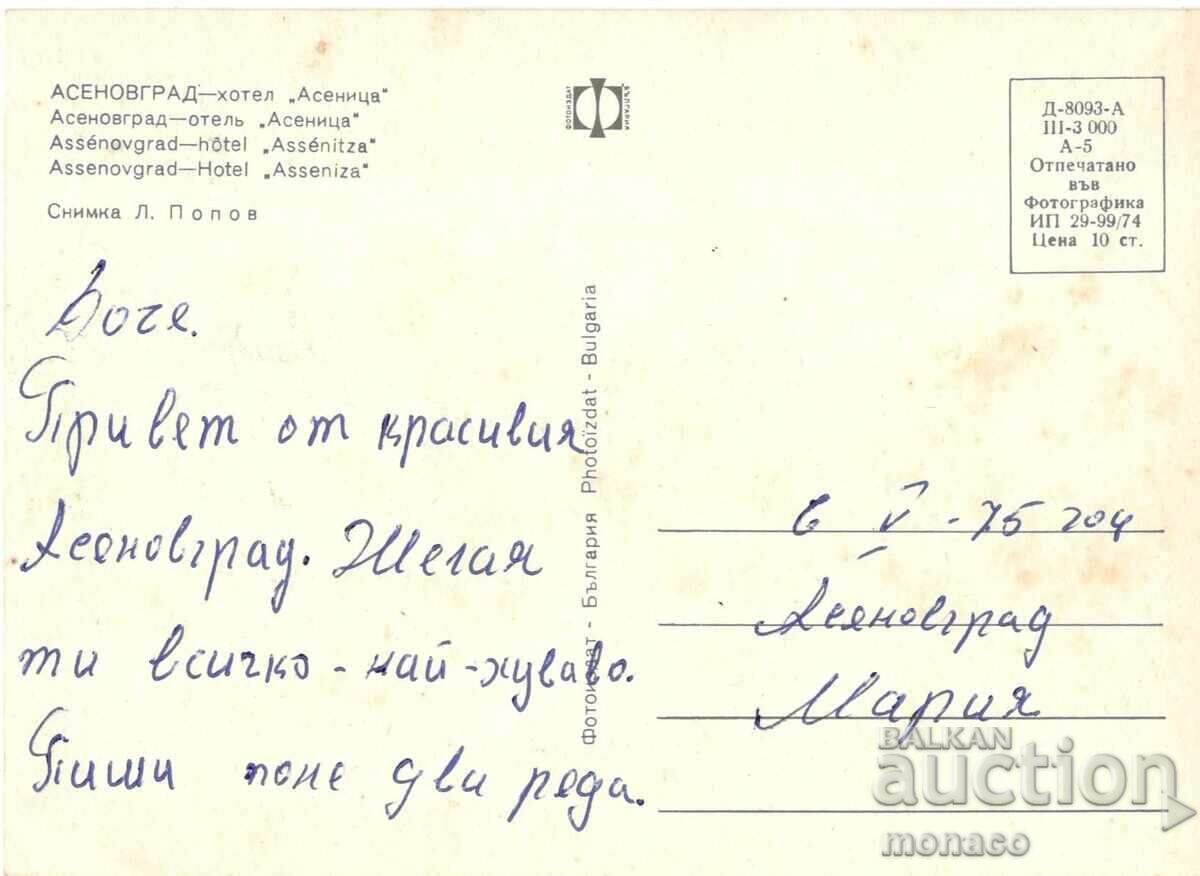 АСЕНОВГРАД—хотел „Асеница"
Асеновград—отель „Асеница"
Assénovgrad—hôtel „Assénitza"
Assenovgrad—Hotel „Asseniza"
Снимка Л. Попов
ФОТОИЗДАТ
БЪЛГАРИЯ
Д-8093-А
III-3 000
А-5
Отпечатано
във
Фотографика
ИП 29-99/74
Цена 10 ст.
Фотоиздат - България Photoïzdat - Bulgaria
Боче.
Привет от красивия
Асеновград. Желая
ти всичко - най-хубаво.
Пиши поне два реда.
V - 75 год
Асеновград
Мария
BALKAN
auction
monaco